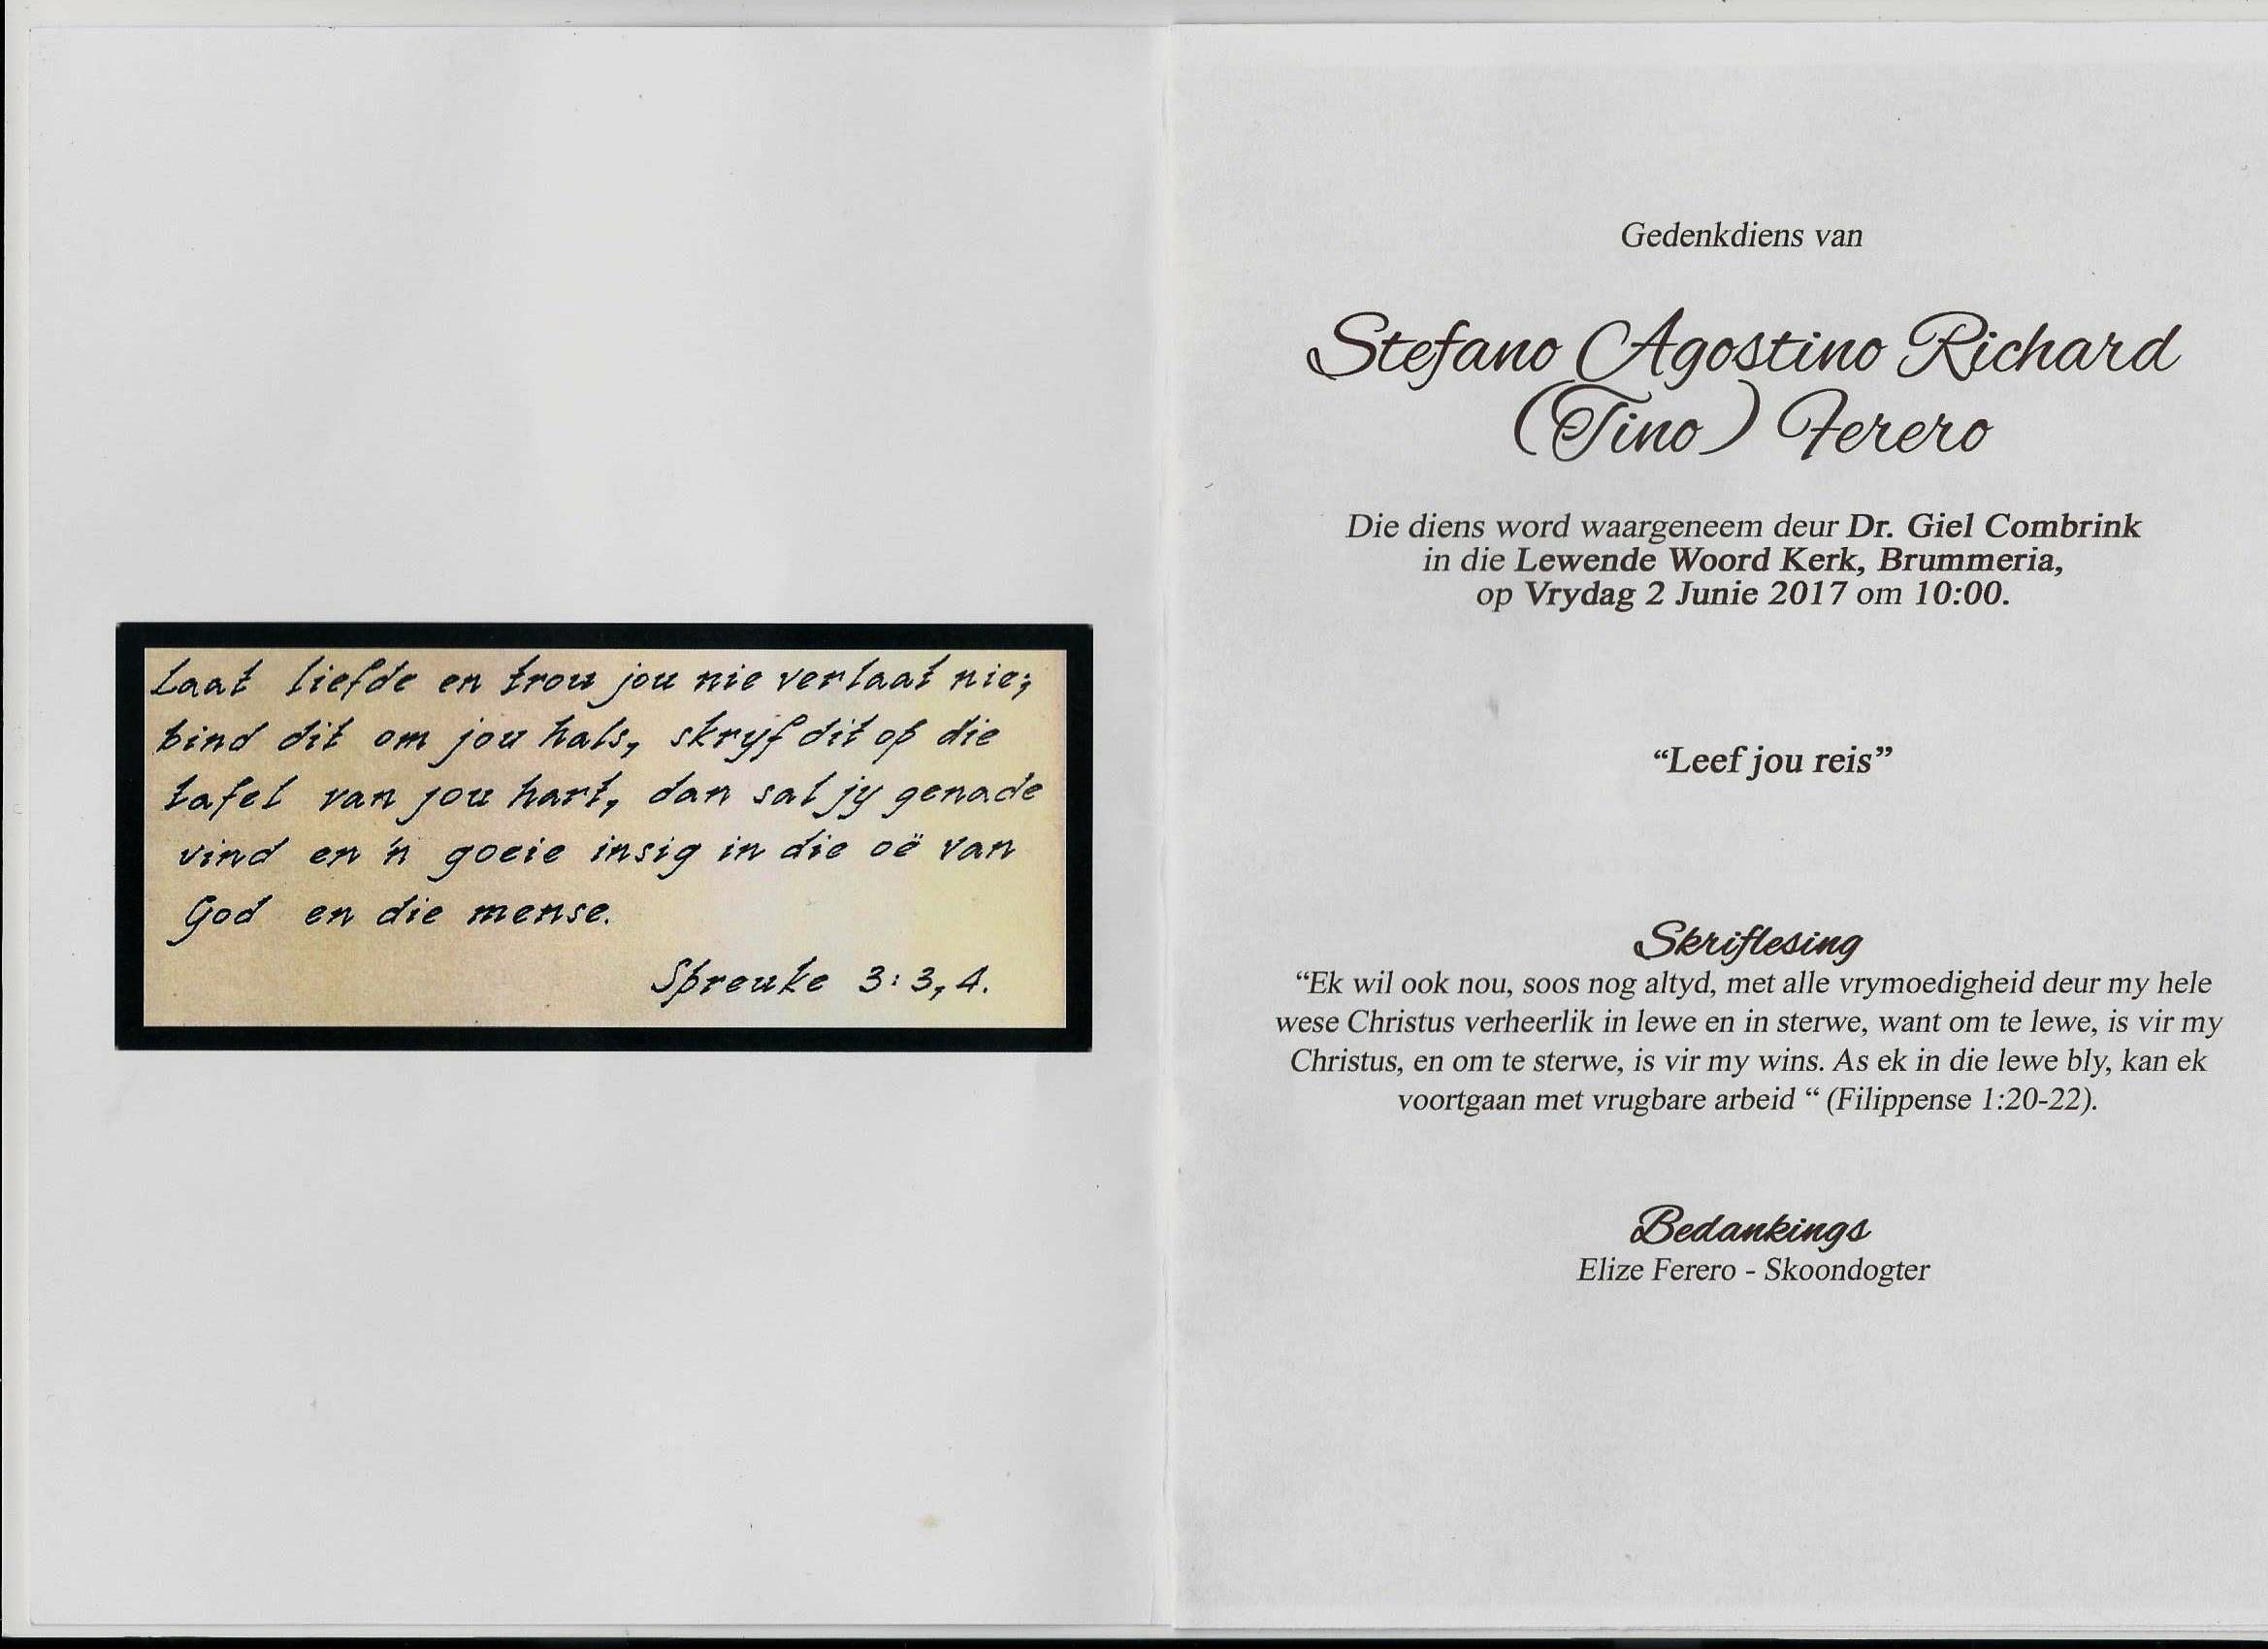 Laat liefde en trou jou nie verlaat nie;
bind dit om jou hals, skryf dit op die
tafel van jou hart, dan sal jy genade
vind en 'n goeie insig in die oë van
God en die mense.
Spreuke 3:3,4.
Gedenkdiens van
Stefano Agostino Richard
(Tino) Ferero
Die diens word waargeneem deur Dr. Giel Combrink
in die Lewende Woord Kerk, Brummeria,
op Vrydag 2 Junie 2017 om 10:00.
“Leef jou reis”
Skriflesing
“Ek wil ook nou, soos nog altyd, met alle vrymoedigheid deur my hele
wese Christus verheerlik in lewe en in sterwe, want om te lewe, is vir my
Christus, en om te sterwe, is vir my wins. As ek in die lewe bly, kan ek
voortgaan met vrugbare arbeid “ (Filippense 1:20-22).
Bedankings
Elize Ferero - Skoondogter